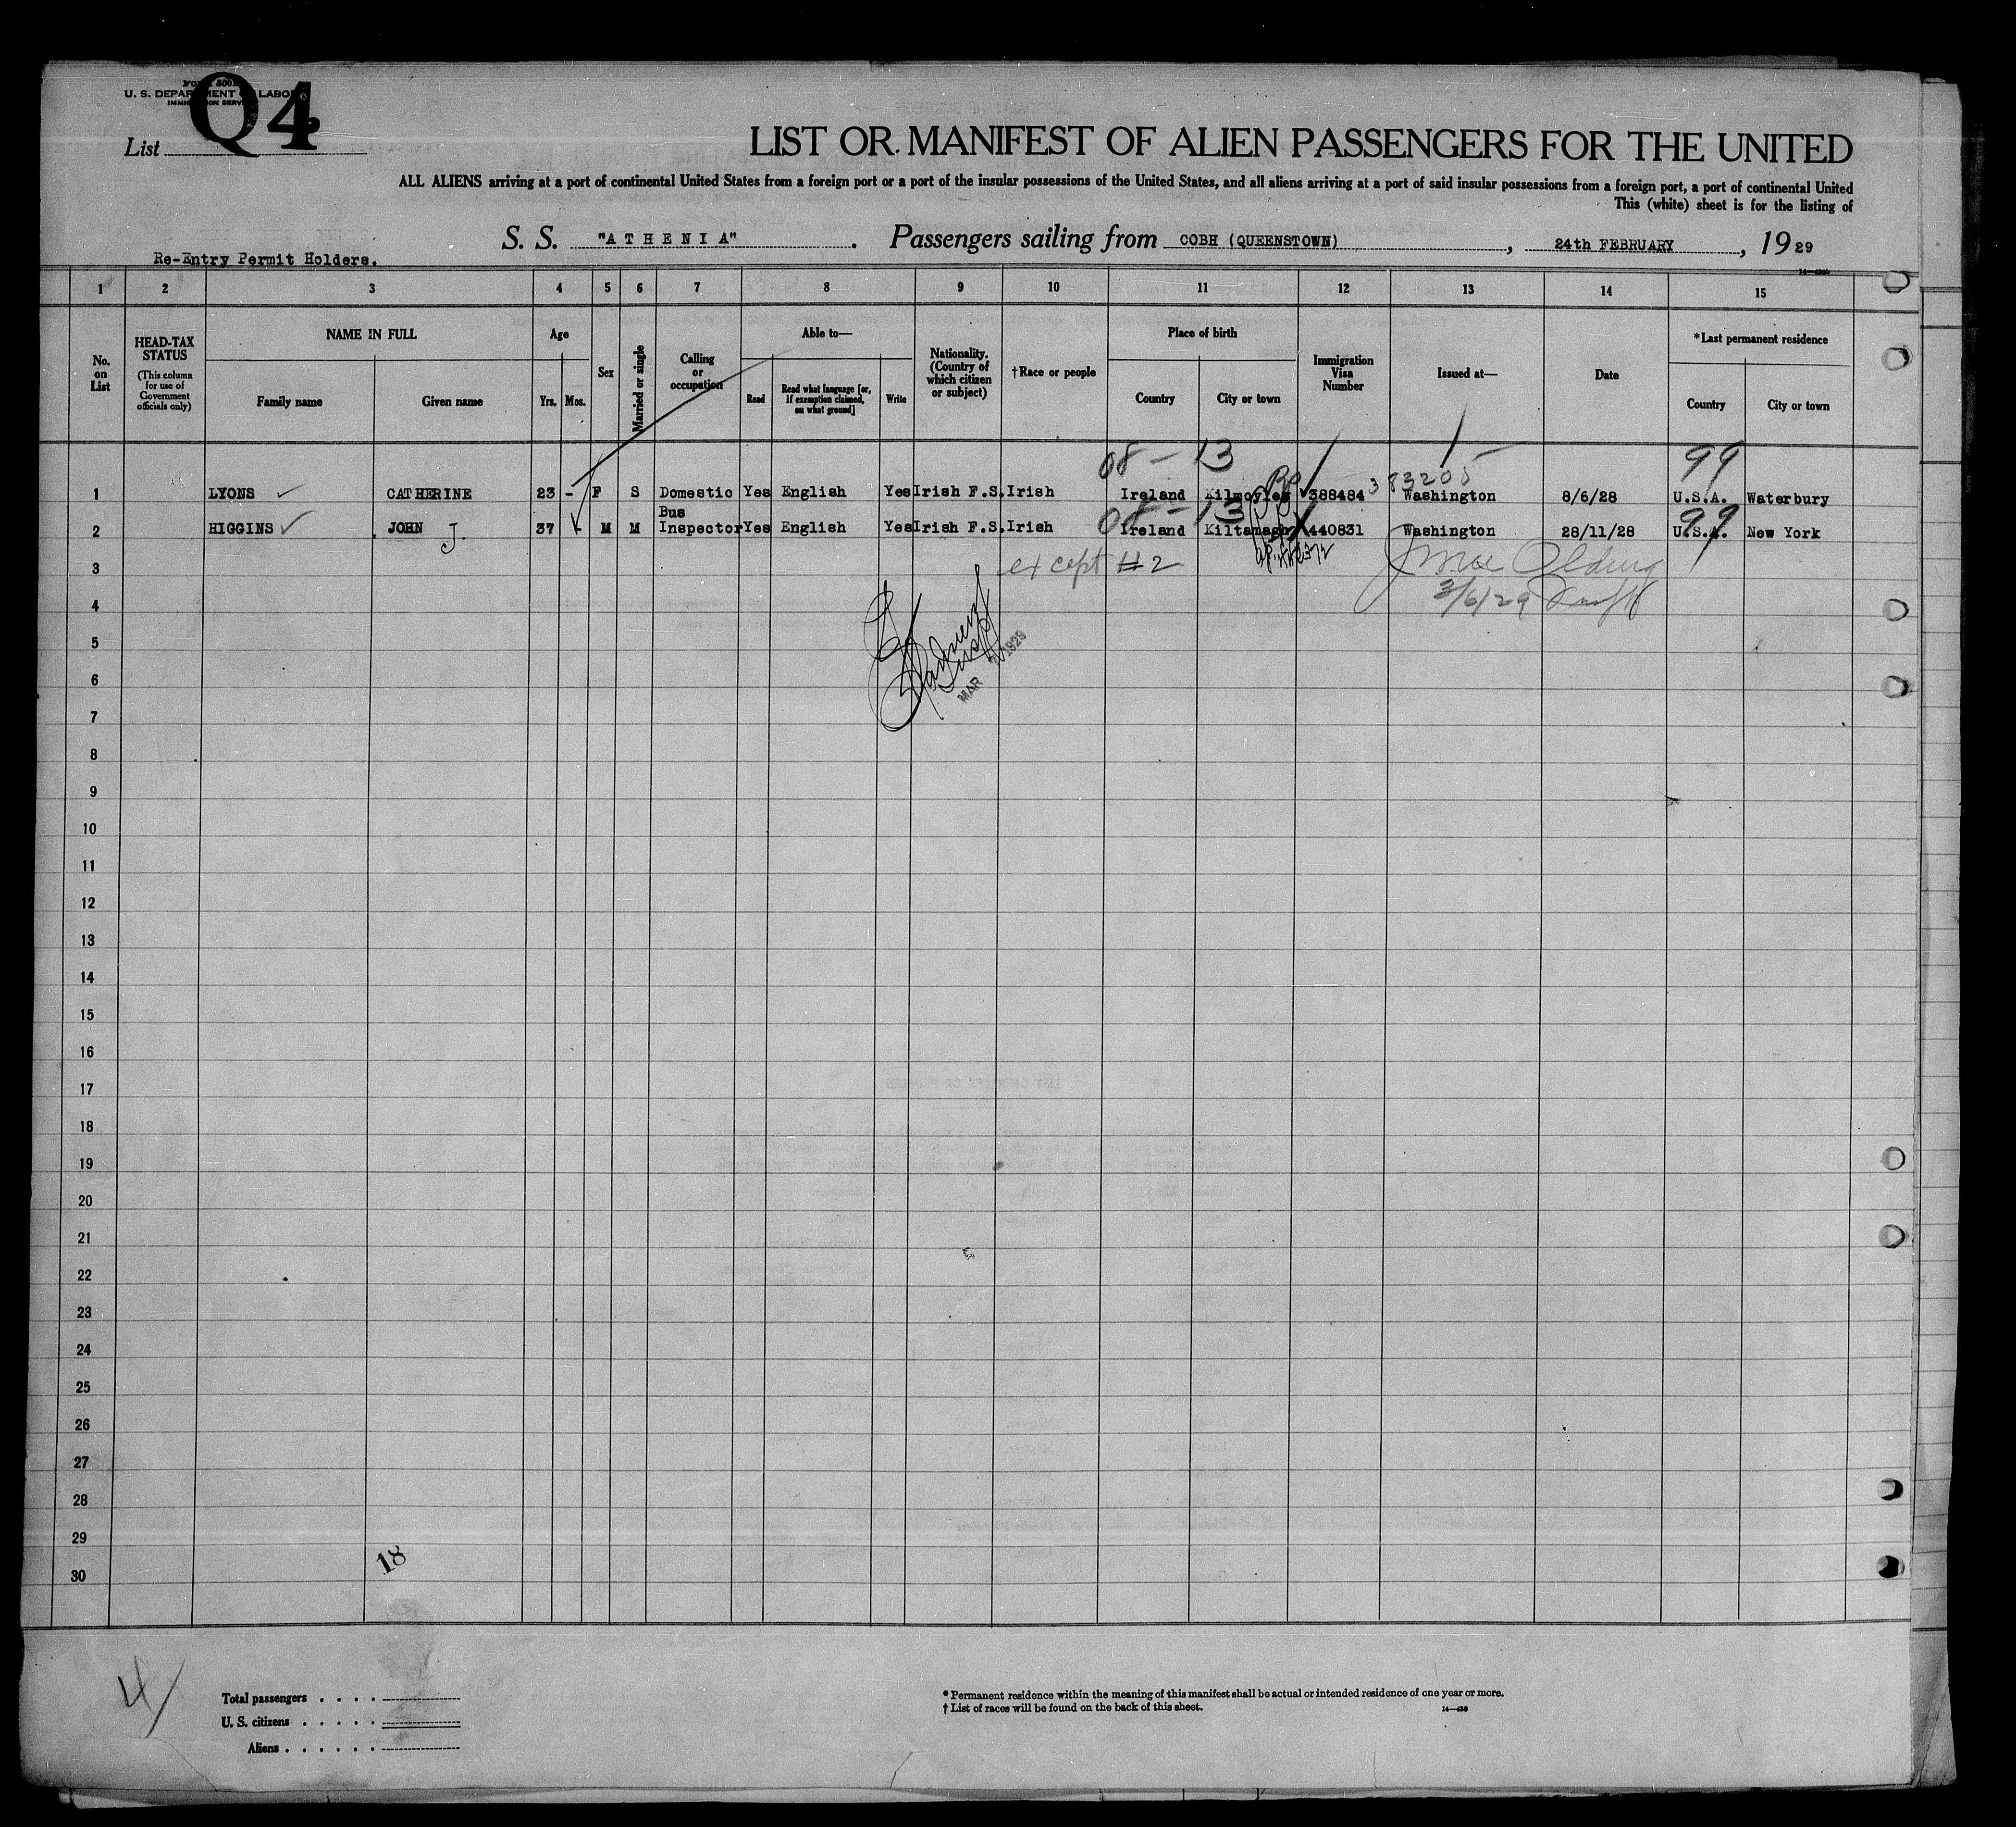 U. S. DEPARTMENT OF LABOR
IMMIGRATION SERVICE
List Q4
LIST OR MANIFEST OF ALIEN PASSENGERS FOR THE UNITED
ALL ALIENS arriving at a port of continental United States from a foreign port or a port of the insular possessions of the United States, and all aliens arriving at a port of said insular possessions from a foreign port, a port of continental United
This (white) sheet is for the listing of
S. S. "ATHENIA". Passengers sailing from COBH (QUEENSTOWN), 24th FEBRUARY, 1929
Re-Entry Permit Holders.
1 2 3 4 5 6 7 8 9 10 11 12 13 14 15
No. on List
HEAD-TAX STATUS
(This column for use of Government officials only)
NAME IN FULL
Family name
Given name
Age
Yrs. Mos.
Sex
Married or single
Calling or occupation
Able to—
Read
Read what language [or, if exemption claimed, on what ground]
Write
Nationality. (Country of which citizen or subject)
†Race or people
Place of birth
Country
City or town
Immigration Visa Number
Issued at—
Date
*Last permanent residence
Country
City or town
08 - 13 383205 99
1 LYONS CATHERINE 23 - F S Domestic Yes English Yes Irish F.S. Irish Ireland Kilmoyley 388484 Washington 8/6/28 U.S.A. Waterbury
08 - 13 99
2 HIGGINS JOHN J. 37 - M M Bus Inspector Yes English Yes Irish F.S. Irish Ireland Kiltamagh 440831 Washington 28/11/28 U.S.A. New York
3 except #2
3/6/29
4
5
MAR 1929
6
7
8
9
10
11
12
13
14
15
16
17
18
19
20
21
22
23
24
25
26
27
28
29
18
30
4
Total passengers . . . .
U. S. citizens . . . . .
Aliens . . . . . .
* Permanent residence within the meaning of this manifest shall be actual or intended residence of one year or more.
† List of races will be found on the back of this sheet.